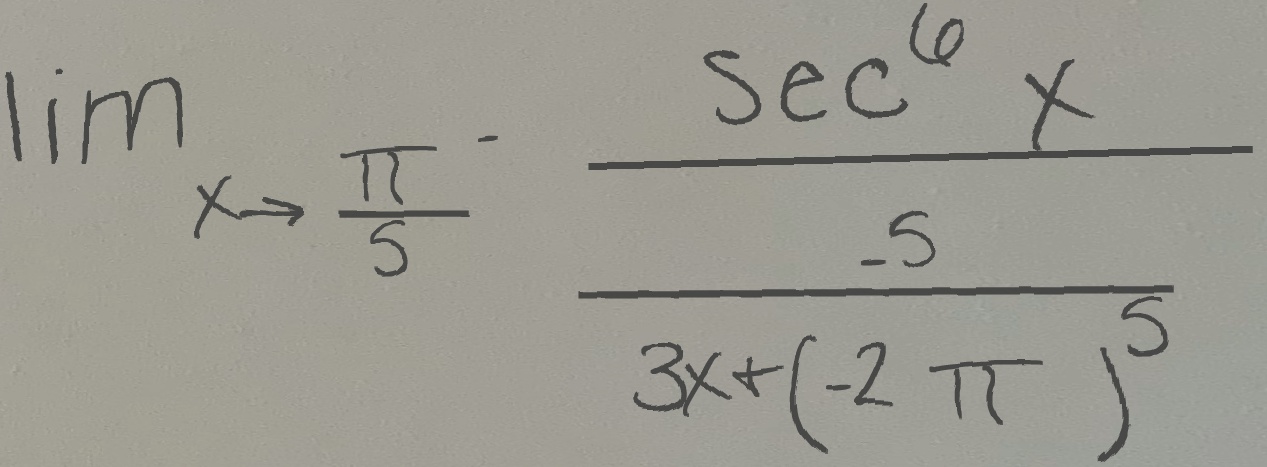 \lim_{x \to \frac{\pi}{5}^{-}} \frac{\sec^{6} x}{\frac{-5}{3x+(-2\pi)^{5}}}